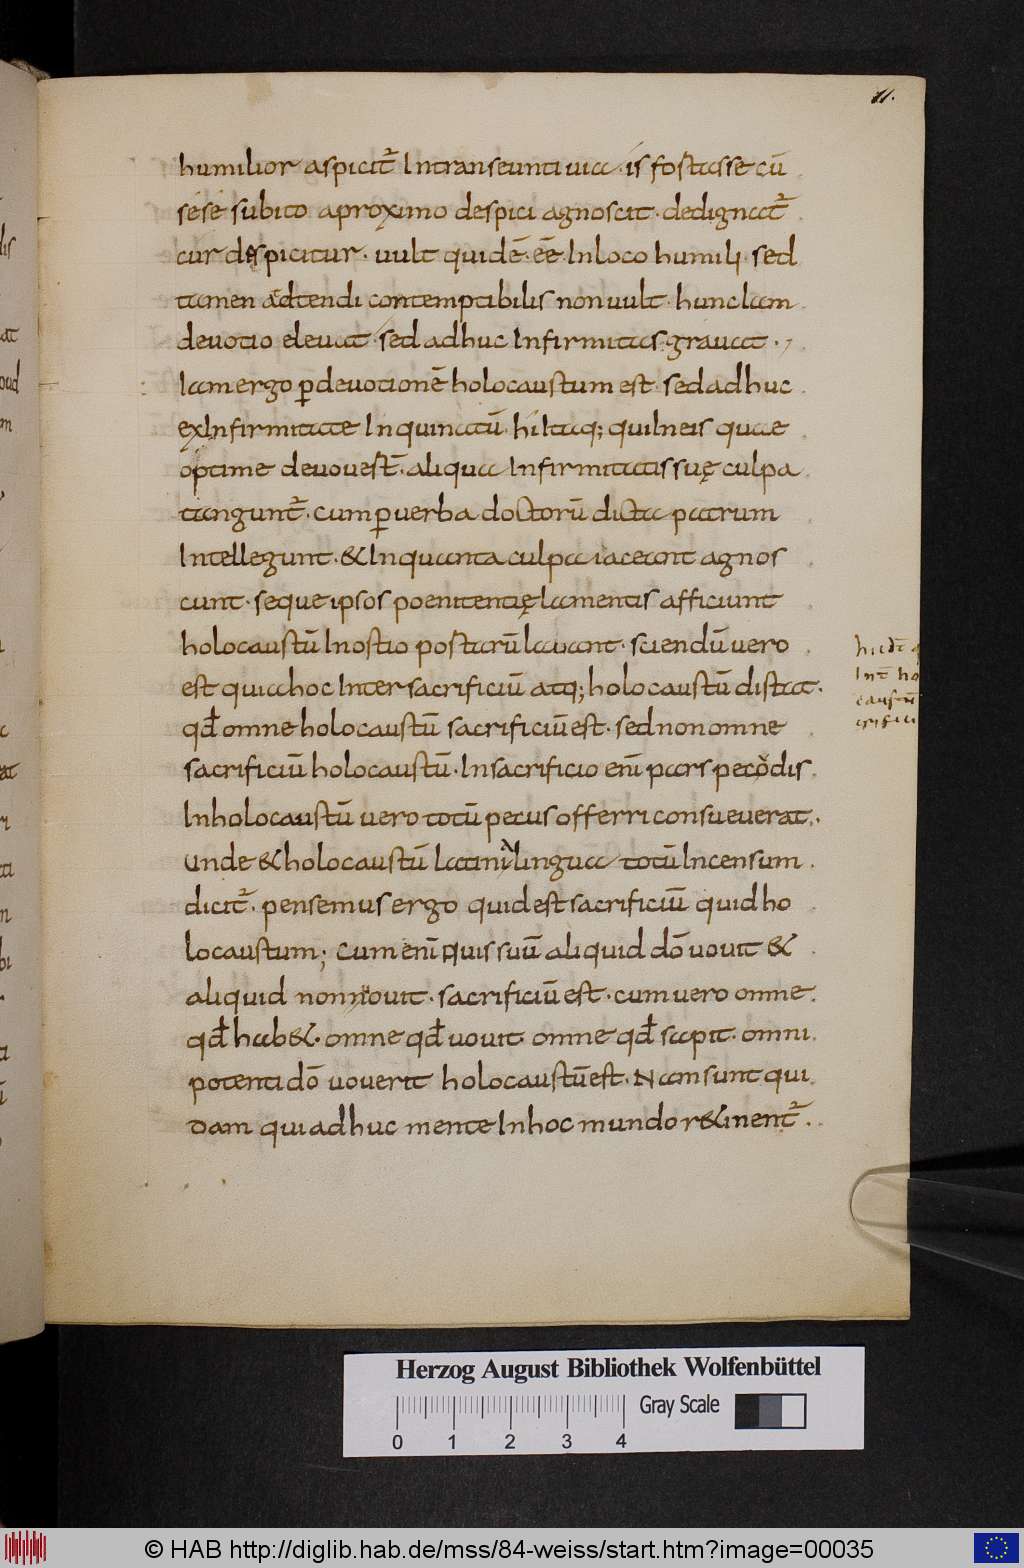 11.
humilior aspicit᷑ Intranseunti uia · is fostasse cū
sése subito aproximo despici agnoscit · dedignat᷑
cur despicitur · uult quidē · eē Inloco humili · sed
tamen adtendi contemptibilis non uult · hunc Iam
deuotio eleuat · sed adhuc Infirmitas grauat · ,
Iam ergo ꝑdeuotionē holocaustum est · sed adhuc
exInfirmitate Inquinatū · hi Itaq; qui Ineis quae
optime deuouest̄ · aliqua Infirmitatis suę culpa
tangunt᷑ · cum ꝑ uerba doctorū dicta patrum
Intellegunt · & Inquanta culpa iaceant agnos
cunt · seque ipsos poenitentię lamentis afficiunt
holocaustū Inostio postarū lauant · sciendū uero
est quia hoc Inter sacrificiū atq; holocaustū distat ·
qđ omne holocaustū sacrificiū est · sed non omne
sacrificiū holocaustū · In sacrificio enī pars pecodis
Inholocaustū uero totū pecus offerri consueuerat ·
Unde & holocaustū latina lingua totū Incensum
dicit᷑ · pensemus ergo quid est sacrificiū quid ho
locaustum; Cum enī quis suū aliquid dō uouit &
aliquid non uouit · sacrificiū est · cum uero omne
qđ hab& · omne qđ uouit · omne qđ sapit · omni
potenti dō uouerit holocaustū est · Nam sunt qui
dam qui adhuc mente Inhoc mundo r&inent᷑ ·
Int̄ ho
caustū
crifici
Herzog August Bibliothek Wolfenbüttel
Gray Scale
0 1 2 3 4
© HAB http://diglib.hab.de/mss/84-weiss/start.htm?image=00035